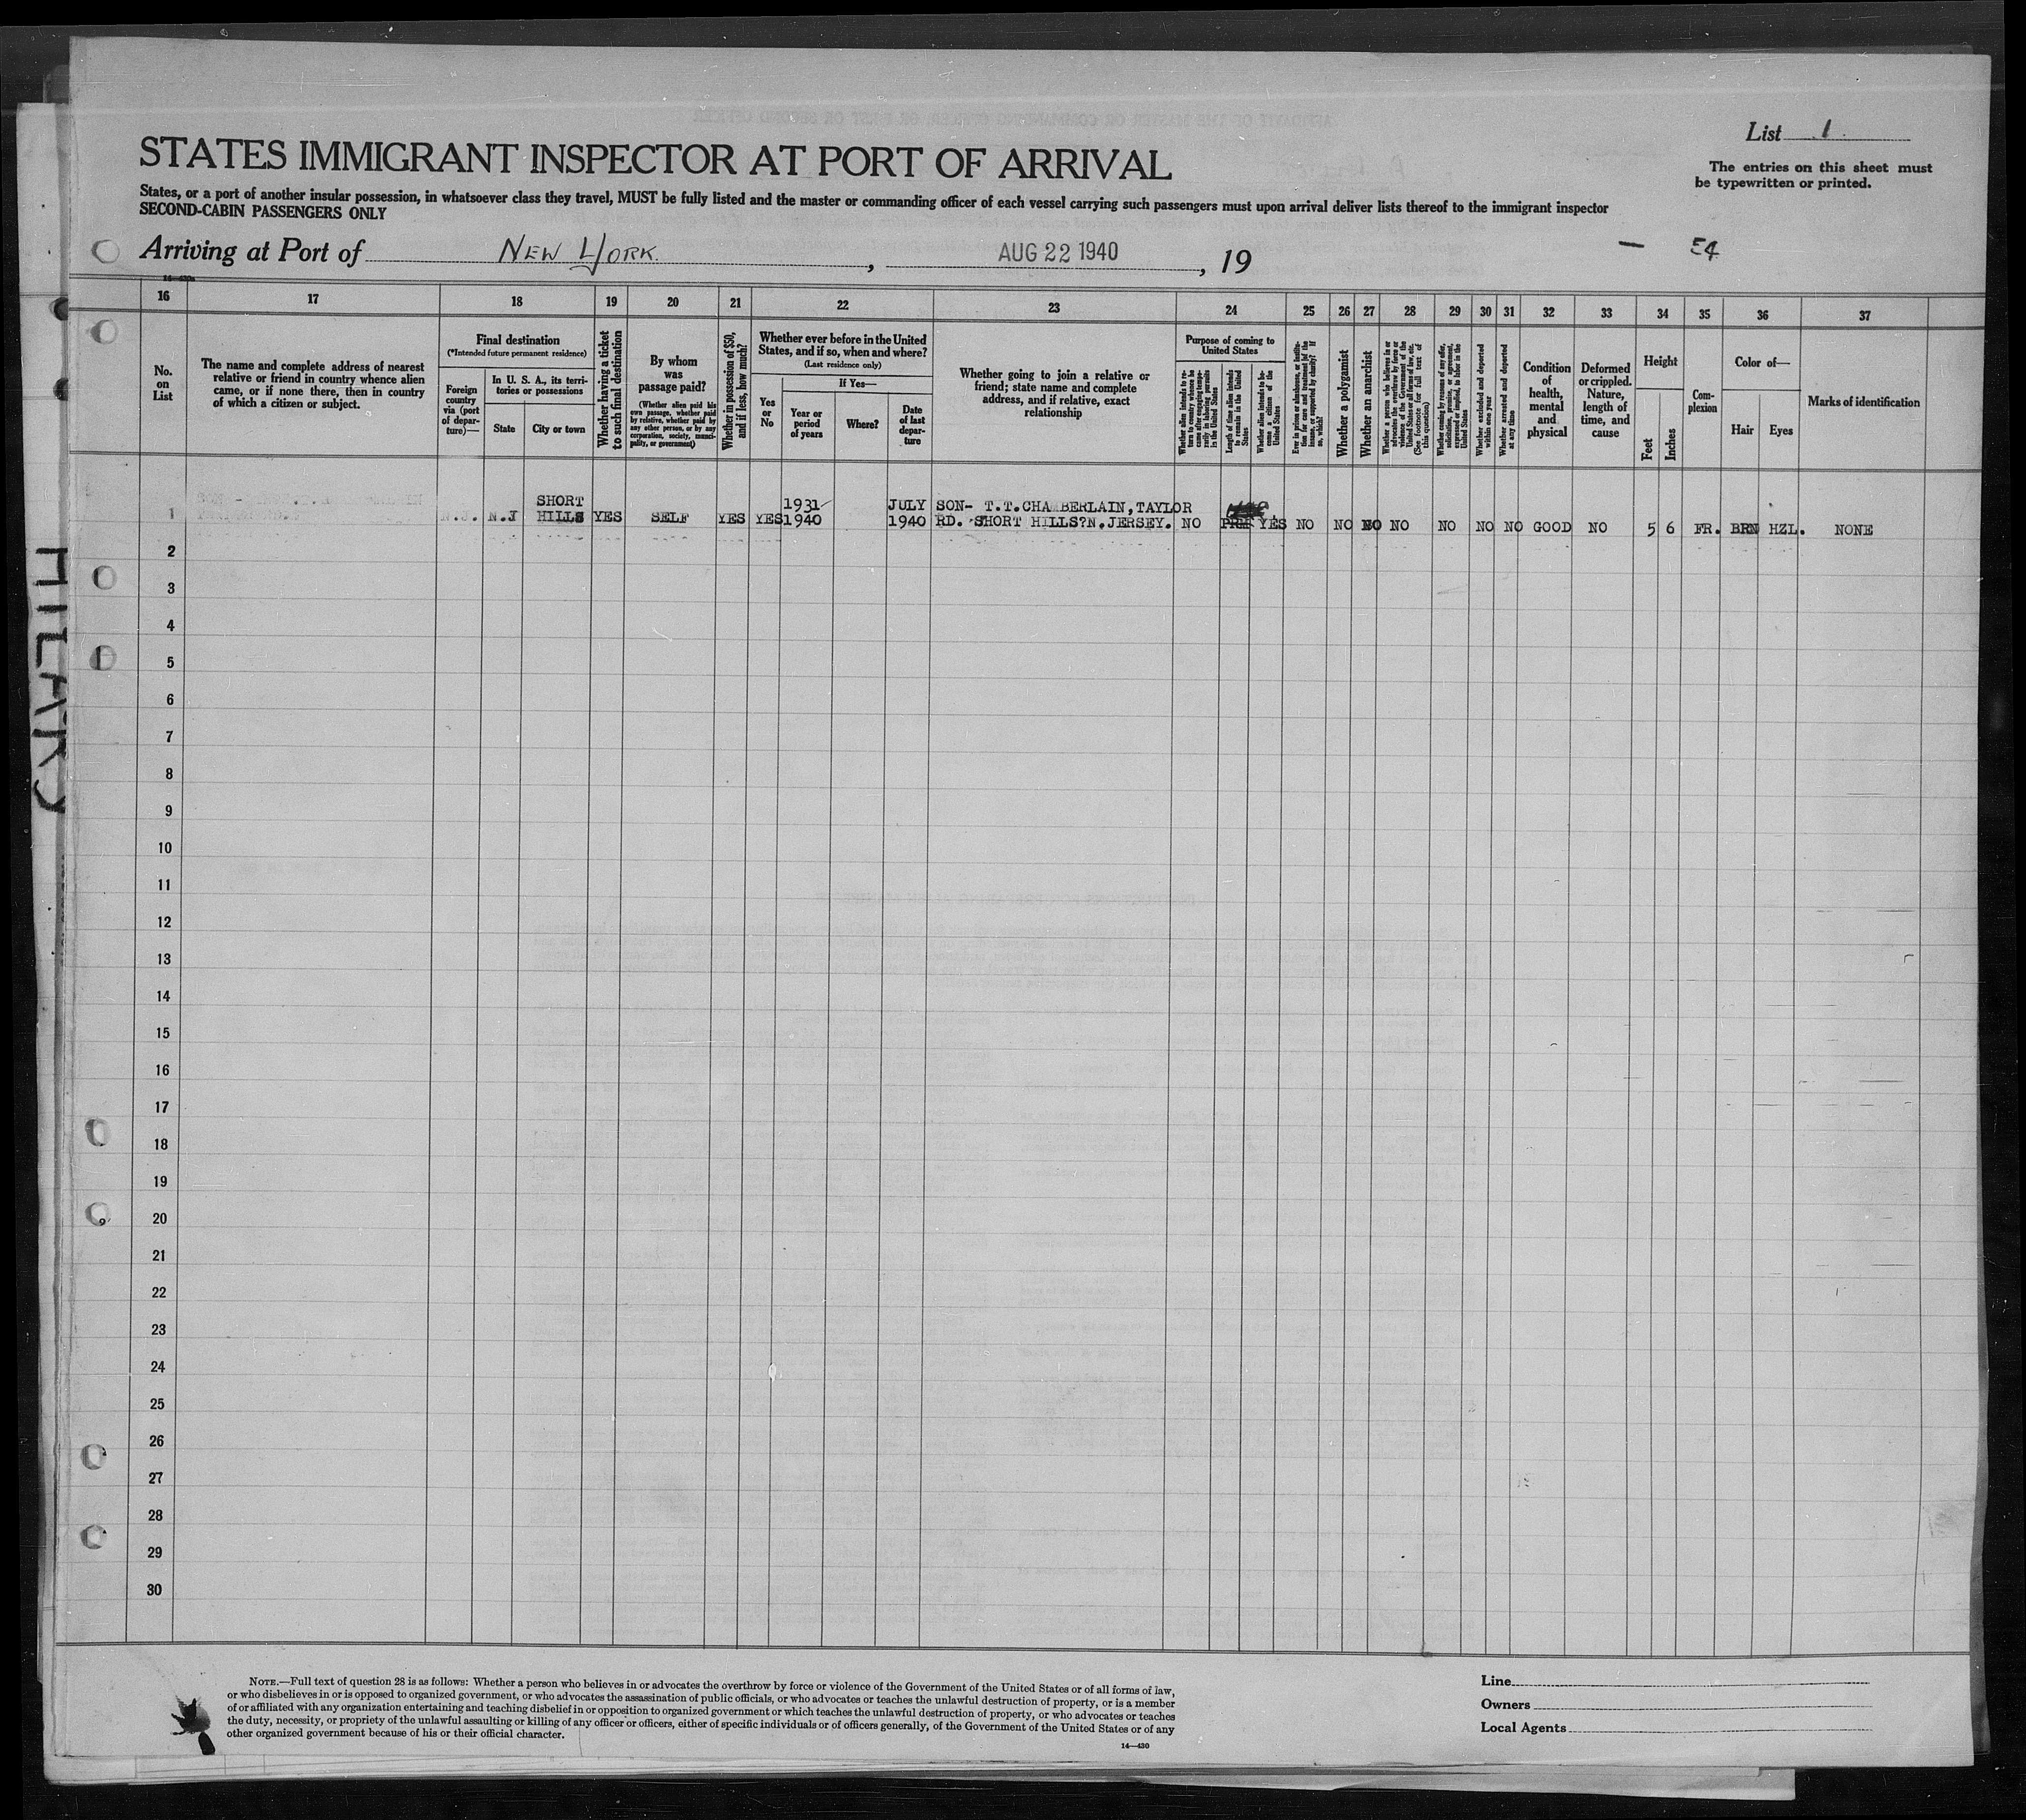 List 1
STATES IMMIGRANT INSPECTOR AT PORT OF ARRIVAL
The entries on this sheet must
be typewritten or printed.
States, or a port of another insular possession, in whatsoever class they travel, MUST be fully listed and the master or commanding officer of each vessel carrying such passengers must upon arrival deliver lists thereof to the immigrant inspector
SECOND-CABIN PASSENGERS ONLY
Arriving at Port of NEW YORK, AUG 22 1940, 19
16 17 18 19 20 21 22 23 24 25 26 27 28 29 30 31 32 33 34 35 36 37
No.
on
List
The name and complete address of nearest
relative or friend in country whence alien
came, or if none there, then in country
of which a citizen or subject.
Final destination
(*Intended future permanent residence)
Foreign
country
via (port
of depar-
ture)—
In U. S. A., its terri-
tories or possessions
State
City or town
Whether having a ticket
to such final destination
By whom
was
passage paid?
(Whether alien paid his
own passage, whether paid
by relative, whether paid by
any other person, or by any
corporation, society, munici-
pality, or government)
Whether in possession of $50,
and if less, how much?
Whether ever before in the United
States, and if so, when and where?
(Last residence only)
Yes
or
No
If Yes—
Year or
period
of years
Where?
Date
of last
depar-
ture
Whether going to join a relative or
friend; state name and complete
address, and if relative, exact
relationship
Purpose of coming to
United States
Whether alien intends to re-
turn to country whence he
came after engaging tempo-
rarily in laboring pursuits
in the United States
Length of time alien intends
to remain in the United
States
Whether alien intends to be-
come a citizen of the
United States
Ever in prison or almshouse, or institu-
tion for care and treatment of the
insane, or supported by charity? If
so, which?
Whether a polygamist
Whether an anarchist
Whether a person who believes in or
advocates the overthrow by force or
violence of the Government of the
United States or all forms of law, etc.
(See footnote for full text of
this question)
Whether coming by reason of any offer,
solicitation, promise, or agreement,
expressed or implied, to labor in the
United States
Whether excluded and deported
within one year
Whether arrested and deported
at any time
Condition
of
health,
mental
and
physical
Deformed
or crippled.
Nature,
length of
time, and
cause
Height
Feet
Inches
Com-
plexion
Color of—
Hair
Eyes
Marks of identification
SHORT 1931 JULY SON- T.T.CHAMBERLAIN,TAYLOR
1 N.J HILLS YES SELF YES YES 1940 1940 RD. SHORT HILLS?N.JERSEY. NO YES NO NO NO NO NO NO NO GOOD NO 5 6 FR. BRN HZL. NONE
2
3
4
5
6
7
8
9
10
11
12
13
14
15
16
17
18
19
20
21
22
23
24
25
26
27
28
29
30
HILARY
NOTE.—Full text of question 28 is as follows: Whether a person who believes in or advocates the overthrow by force or violence of the Government of the United States or of all forms of law,
or who disbelieves in or is opposed to organized government, or who advocates the assassination of public officials, or who advocates or teaches the unlawful destruction of property, or is a member
of or affiliated with any organization entertaining and teaching disbelief in or opposition to organized government or which teaches the unlawful destruction of property, or who advocates or teaches
the duty, necessity, or propriety of the unlawful assaulting or killing of any officer or officers, either of specific individuals or of officers generally, of the Government of the United States or of any
other organized government because of his or their official character.
14—430
Line
Owners
Local Agents